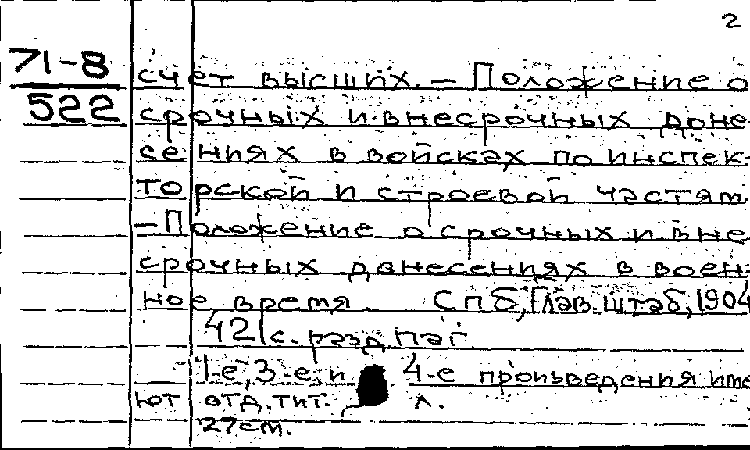 2
71-8
522
счет высших. – Положение о
срочных и внесрочных доне-
сениях в войсках по инспек-
торской и строевой частям.
– Положение о срочных и вне-
срочных донесениях в воен-
ное время. СПб, Глав. штаб, 1904
421 с. разд. паг.
1-е, 3-е, и 4-е произведения име-
ют отд. тит. л.
27 см.